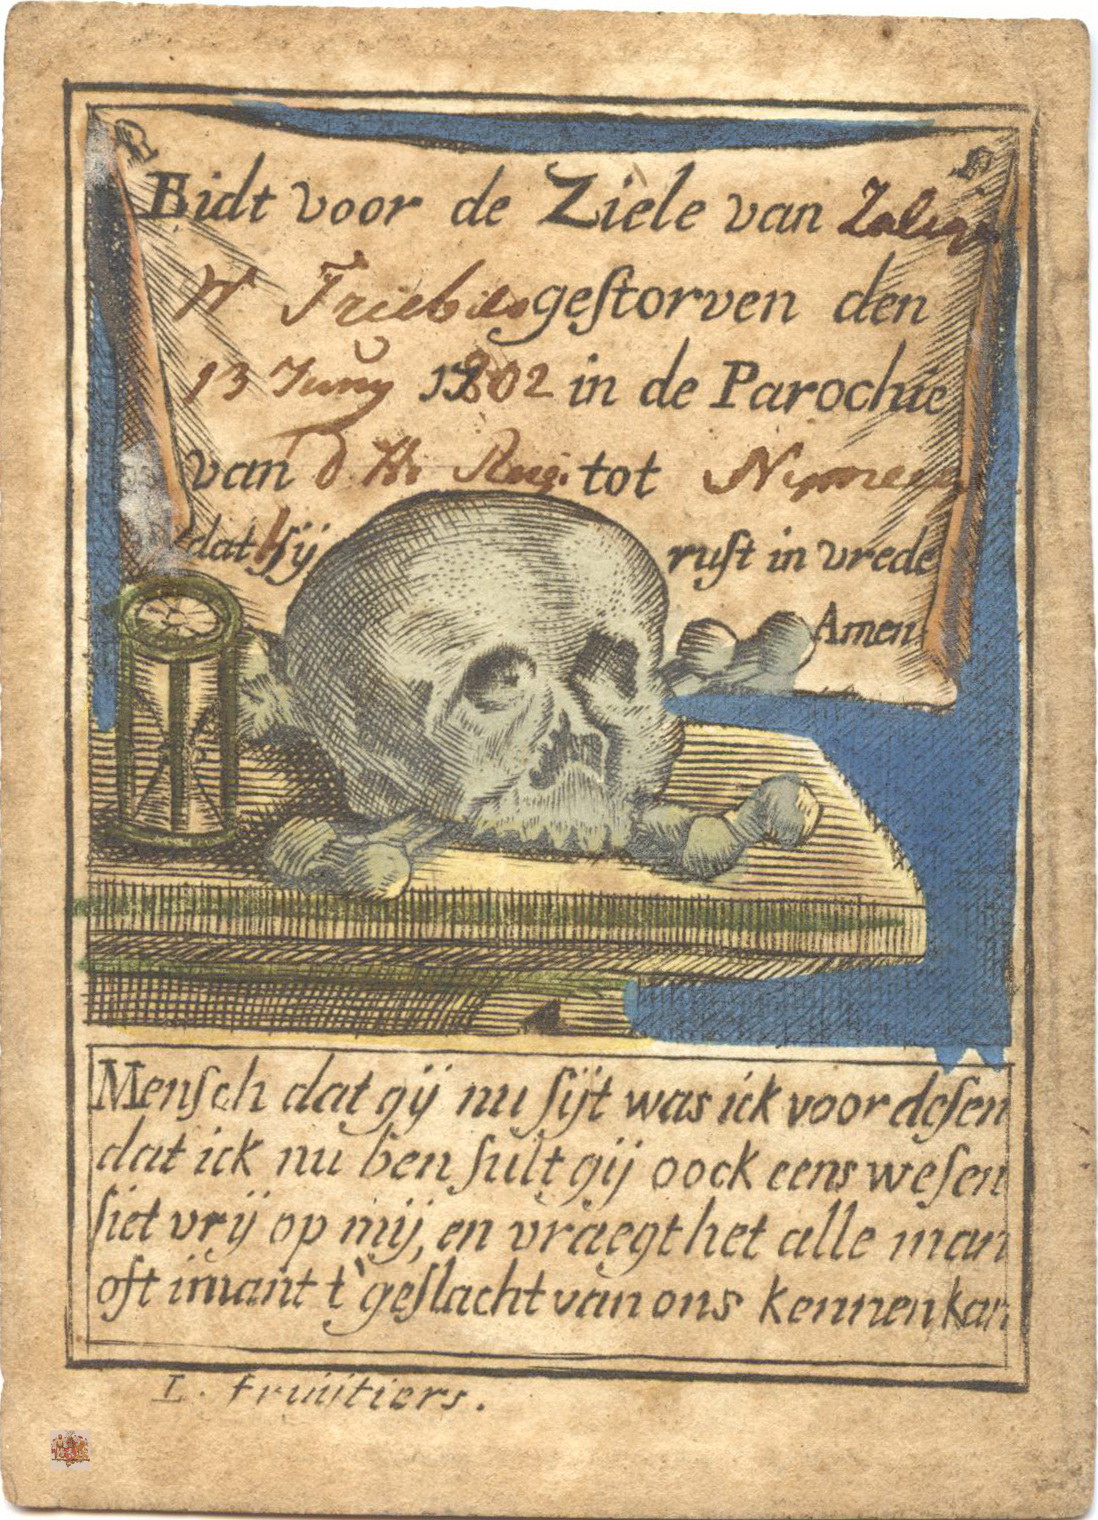 Bidt voor de Ziele van Zalig
W Friebus gestorven den
13 Juny 1802 in de Parochie
van d Hr tot Nymeeg
dat hij rust in vrede
Amen
Mensch dat gij nu sijt was ick voor desen
dat ick nu ben sult gij oock eens wesen
siet vrij op mij, en vraegt het alle man
oft imant t'geslacht van ons kennen kan
L. fruijtiers.